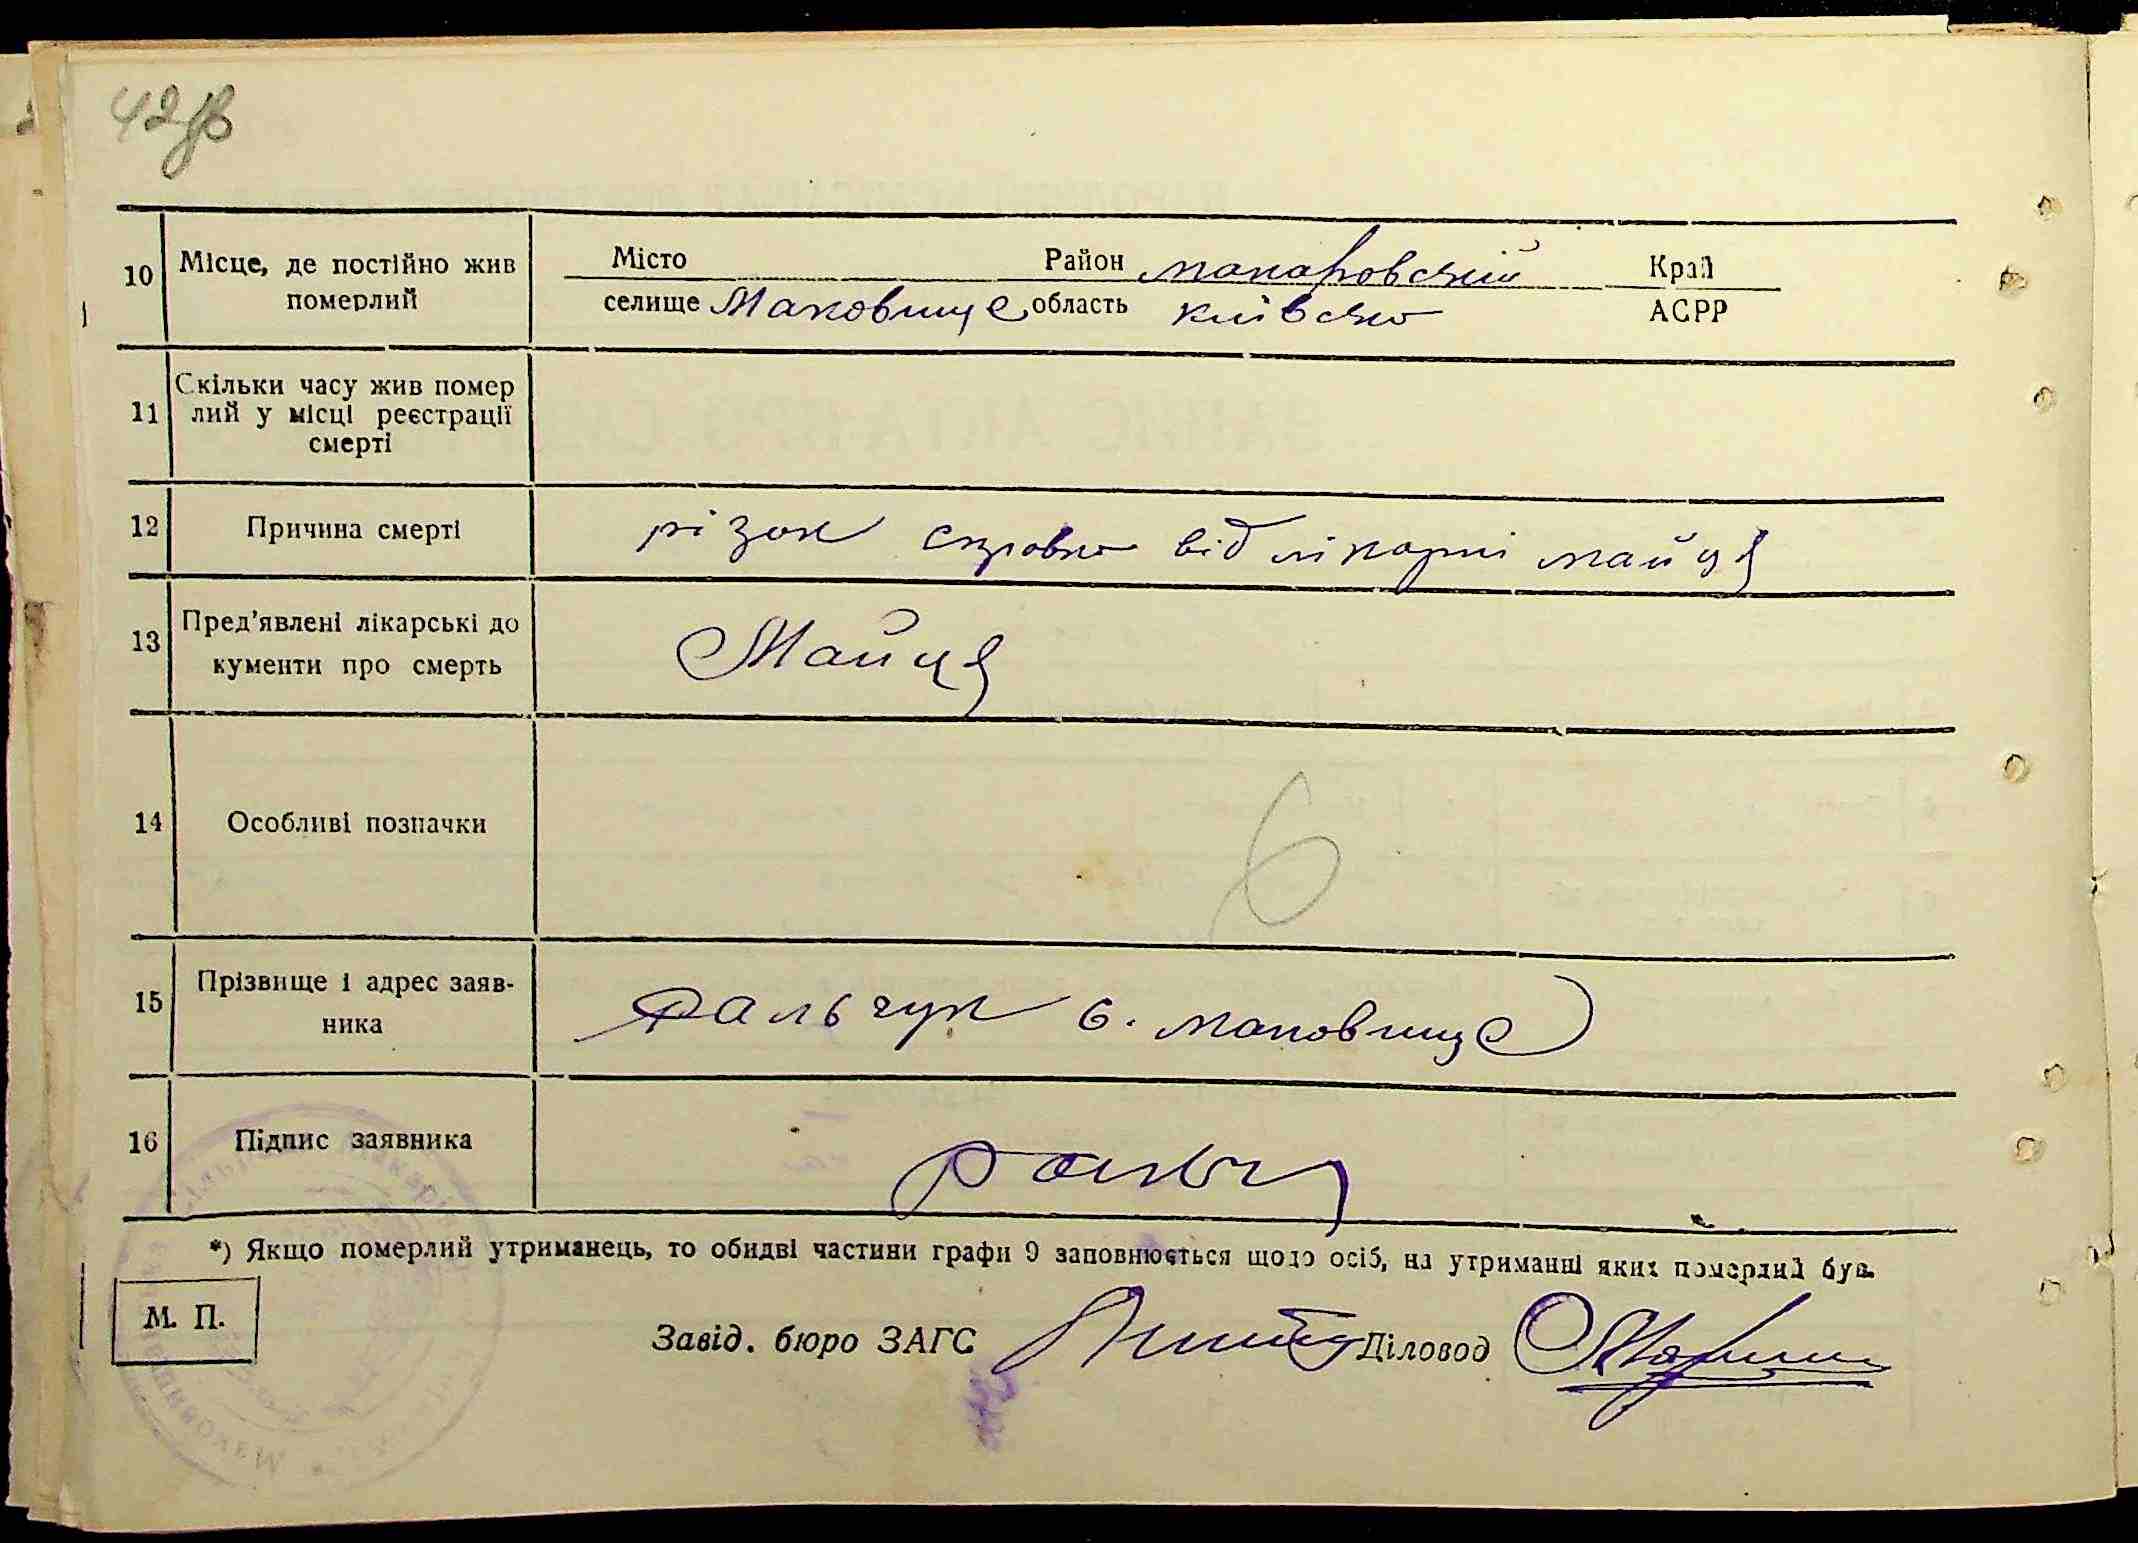 42зв
10 Місце, де постійно жив померлий
Місто Район макаровский Край
селище Маковище область київська АСРР
11 Скільки часу жив помер
лий у місці реєстрації
смерті
12 Причина смерті різак справка від лікарні майця
13 Пред'явлені лікарські до
кументи про смерть
Майця
14 Особливі позначки
6
15 Прізвище і адрес заяв-
ника
Фальчук с. маковище
16 Підпис заявника
*) Якщо померлий утриманець, то обидві частини графи 9 заповнюється щодо осіб, на утриманні яких померлий був.
М. П.
Завід. бюро ЗАГС Діловод